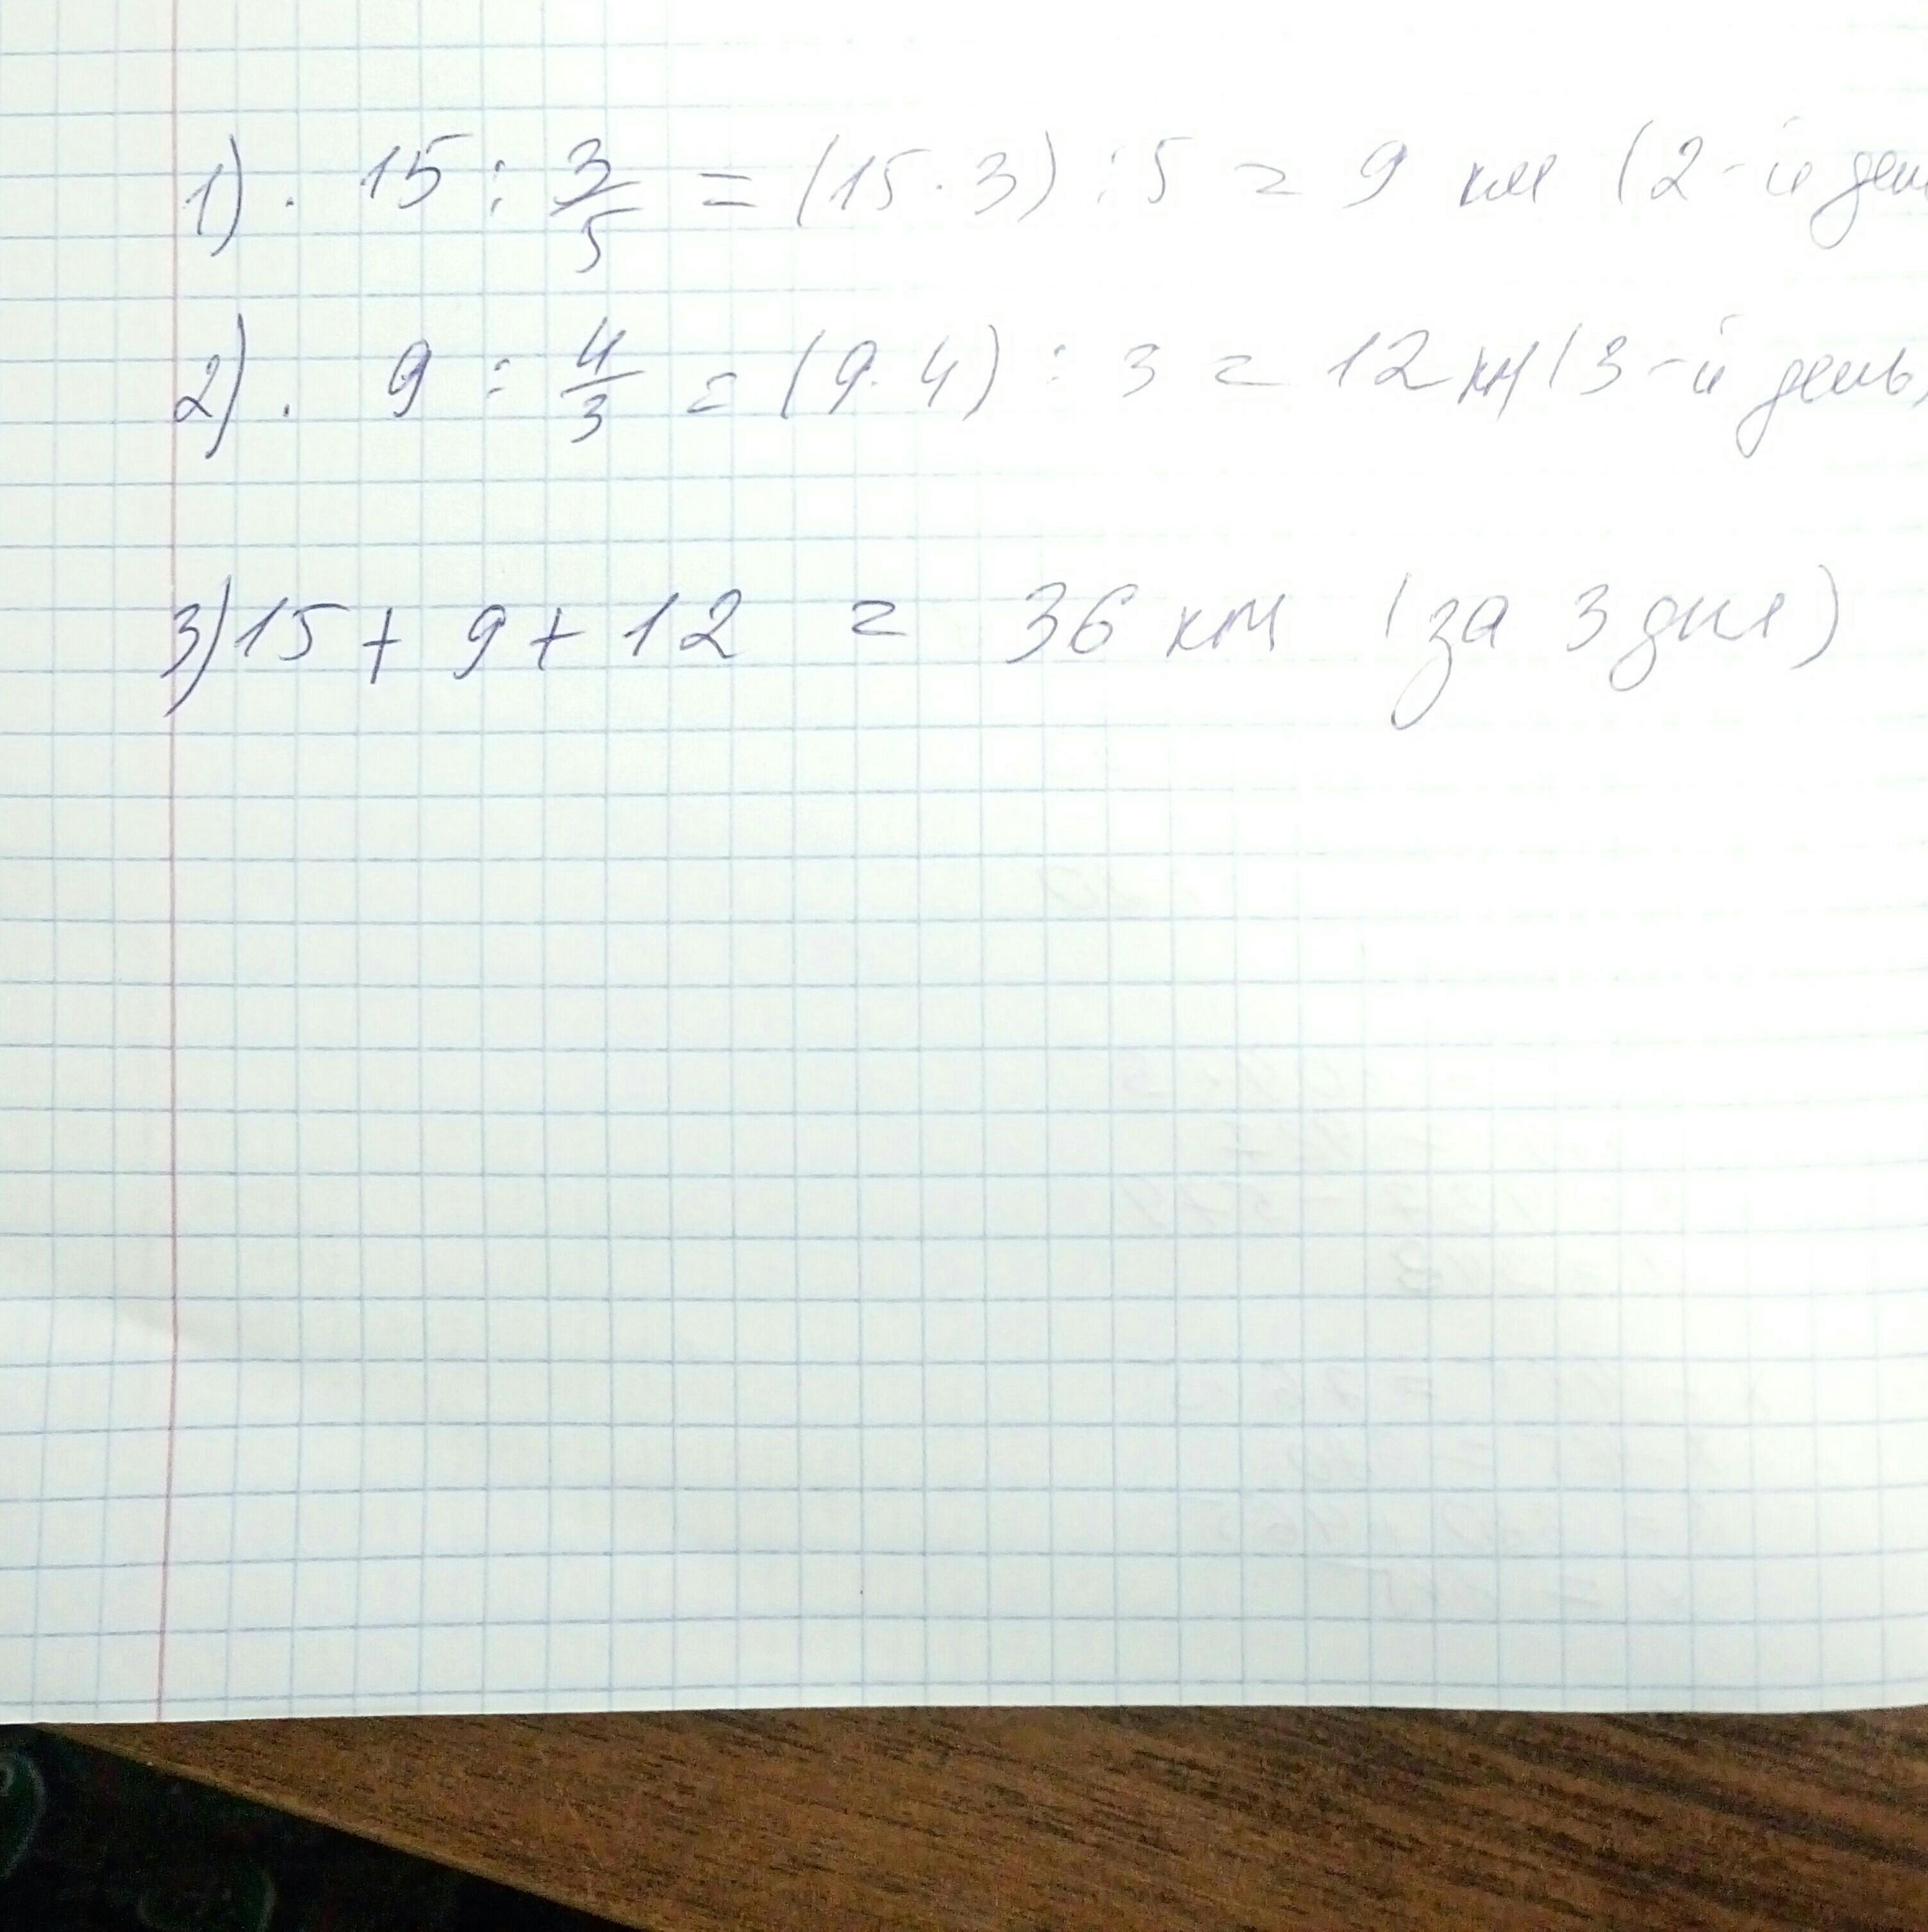 1). 15 : 3/5 = (15·3) : 5 = 9 км (2-й ден
2). 9 : 4/3 = (9·4) : 3 = 12 км (3-й день)
3) 15 + 9 + 12 = 36 км (за 3 дня)